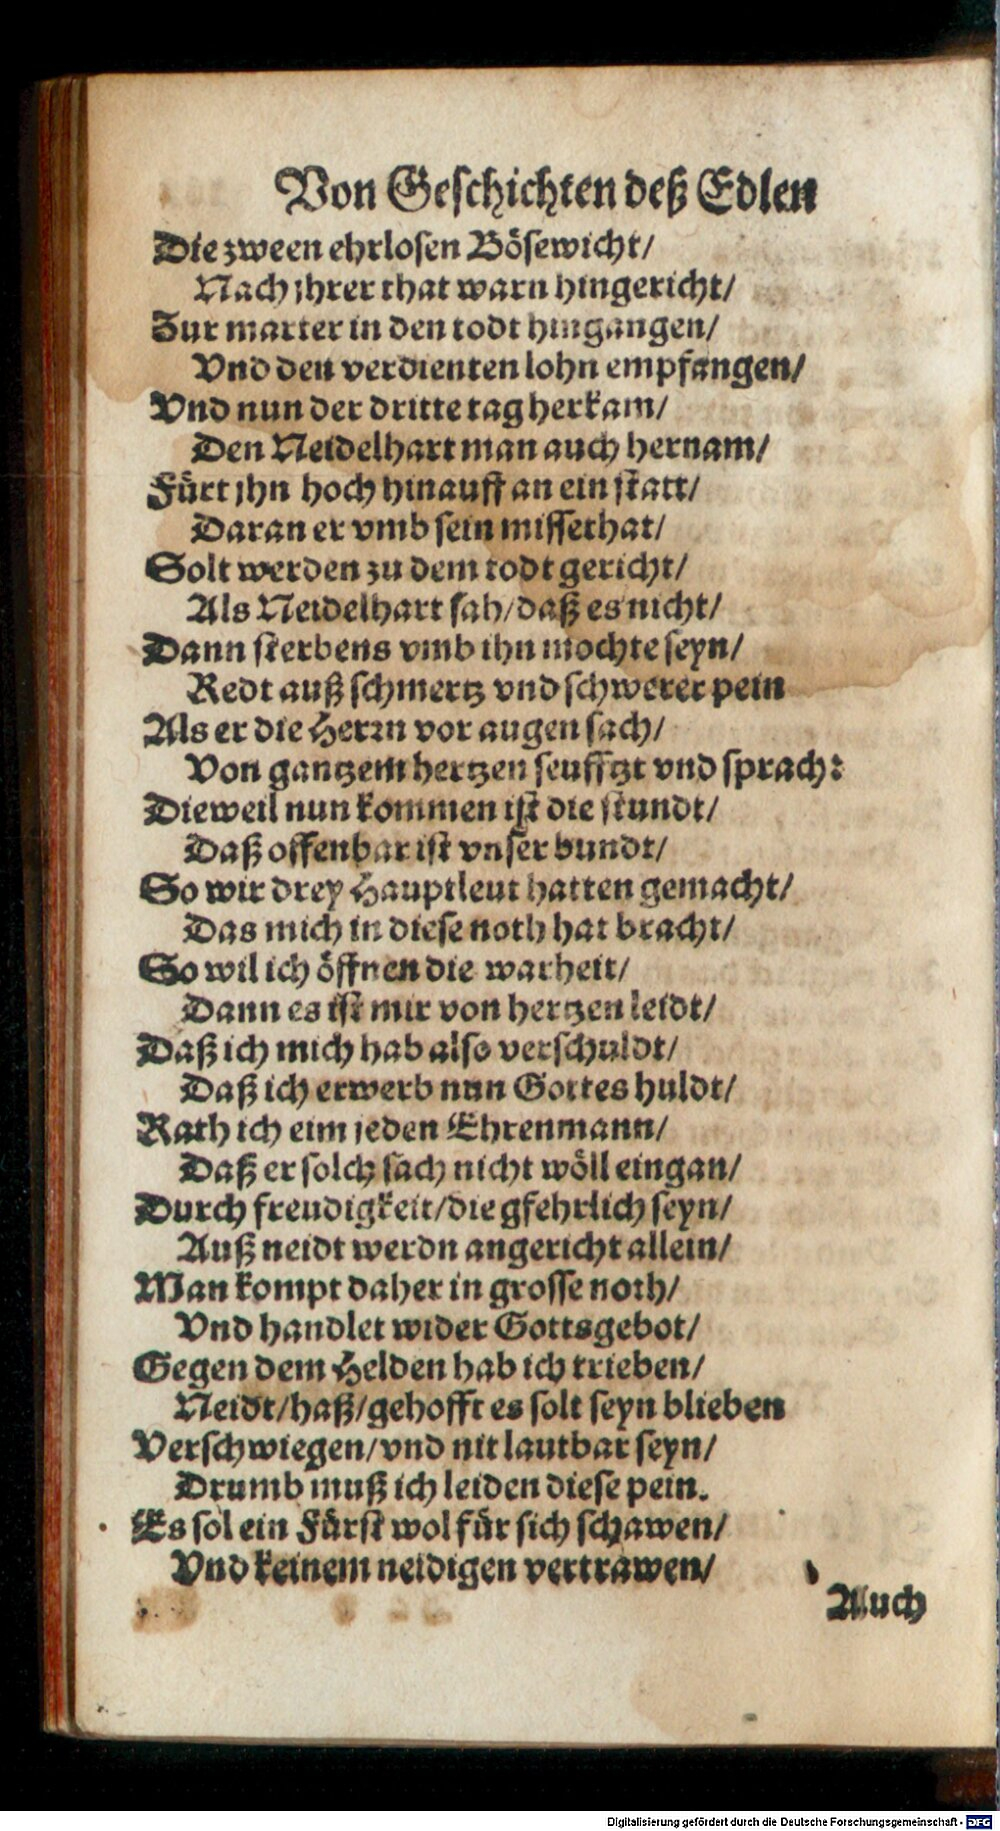 Von Geschichten deß Edlen
Die zween ehrlosen Bösewicht/
Nach jhrer that warn hingericht/
Zur marter in den todt hingangen/
Vnd den verdienten lohn empfangen/
Vnd nun der dritte tag herkam/
Den Neidelhart man auch hernam/
Fürt jhn hoch hinauff an ein statt/
Daran er vmb sein missethat/
Solt werden zu dem todt gericht/
Als Neidelhart sah/daß es nicht/
Dann sterbens vmb ihn mochte seyn/
Redt auß schmertz vnd schwerer pein
Als er die Herrn vor augen sach/
Von gantzem hertzen seufftzt vnd sprach:
Dieweil nun kommen ist die stundt/
Daß offenbar ist vnser bundt/
So wir drey Hauptleut hatten gemacht/
Das mich in diese noth hat bracht/
So wil ich öffnen die warheit/
Dann es ist mir von hertzen leidt/
Daß ich mich hab also verschuldt/
Daß ich erwerb nun Gottes huldt/
Rath ich eim jeden Ehrenmann/
Daß er solch sach nicht wöll eingan/
Durch freudigkeit/die gfehrlich seyn/
Auß neidt werdn angericht allein/
Man kompt daher in grosse noth/
Vnd handlet wider Gottsgebot/
Gegen dem Helden hab ich trieben/
Neidt/haß/gehofft es solt seyn blieben
Verschwiegen/vnd nit lautbar seyn/
Drumb muß ich leiden diese pein.
Es sol ein Fürst wol für sich schawen/
Vnd keinem neidigen vertrawen/
Auch
Digitalisierung gefördert durch die Deutsche Forschungsgemeinschaft - DFG